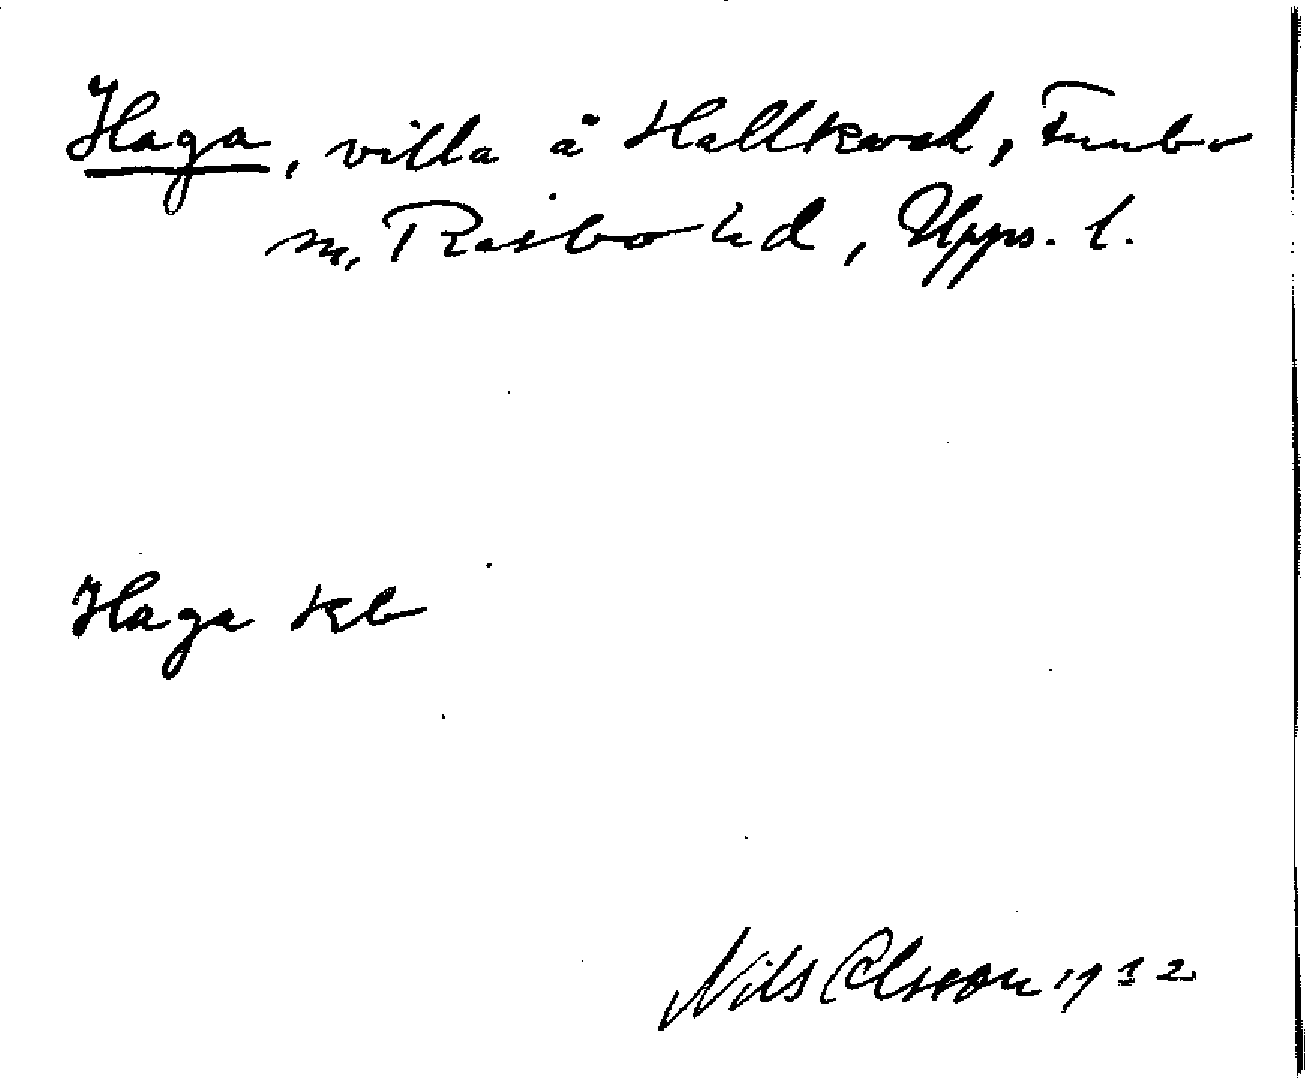 Haga, villa å Hallkved, Funbo
sn, Rasbo hd, Upps. l.
Haga kb
Nils Olsson 1932